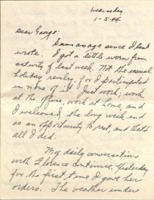 Wednesday
1-5-44
Dear George:
Seems an age since I last
wrote. I got a little worn from
activity of last week. Not the usual
holiday revelry, for I participated
in none of it. Just work, work
at the office, work at home, and
I welcomed the long week end
as an opportunity to rest, and that's
all I did.
My daily conversations
with Florence continues. Yesterday
for the first time I gave her
orders. The weather under